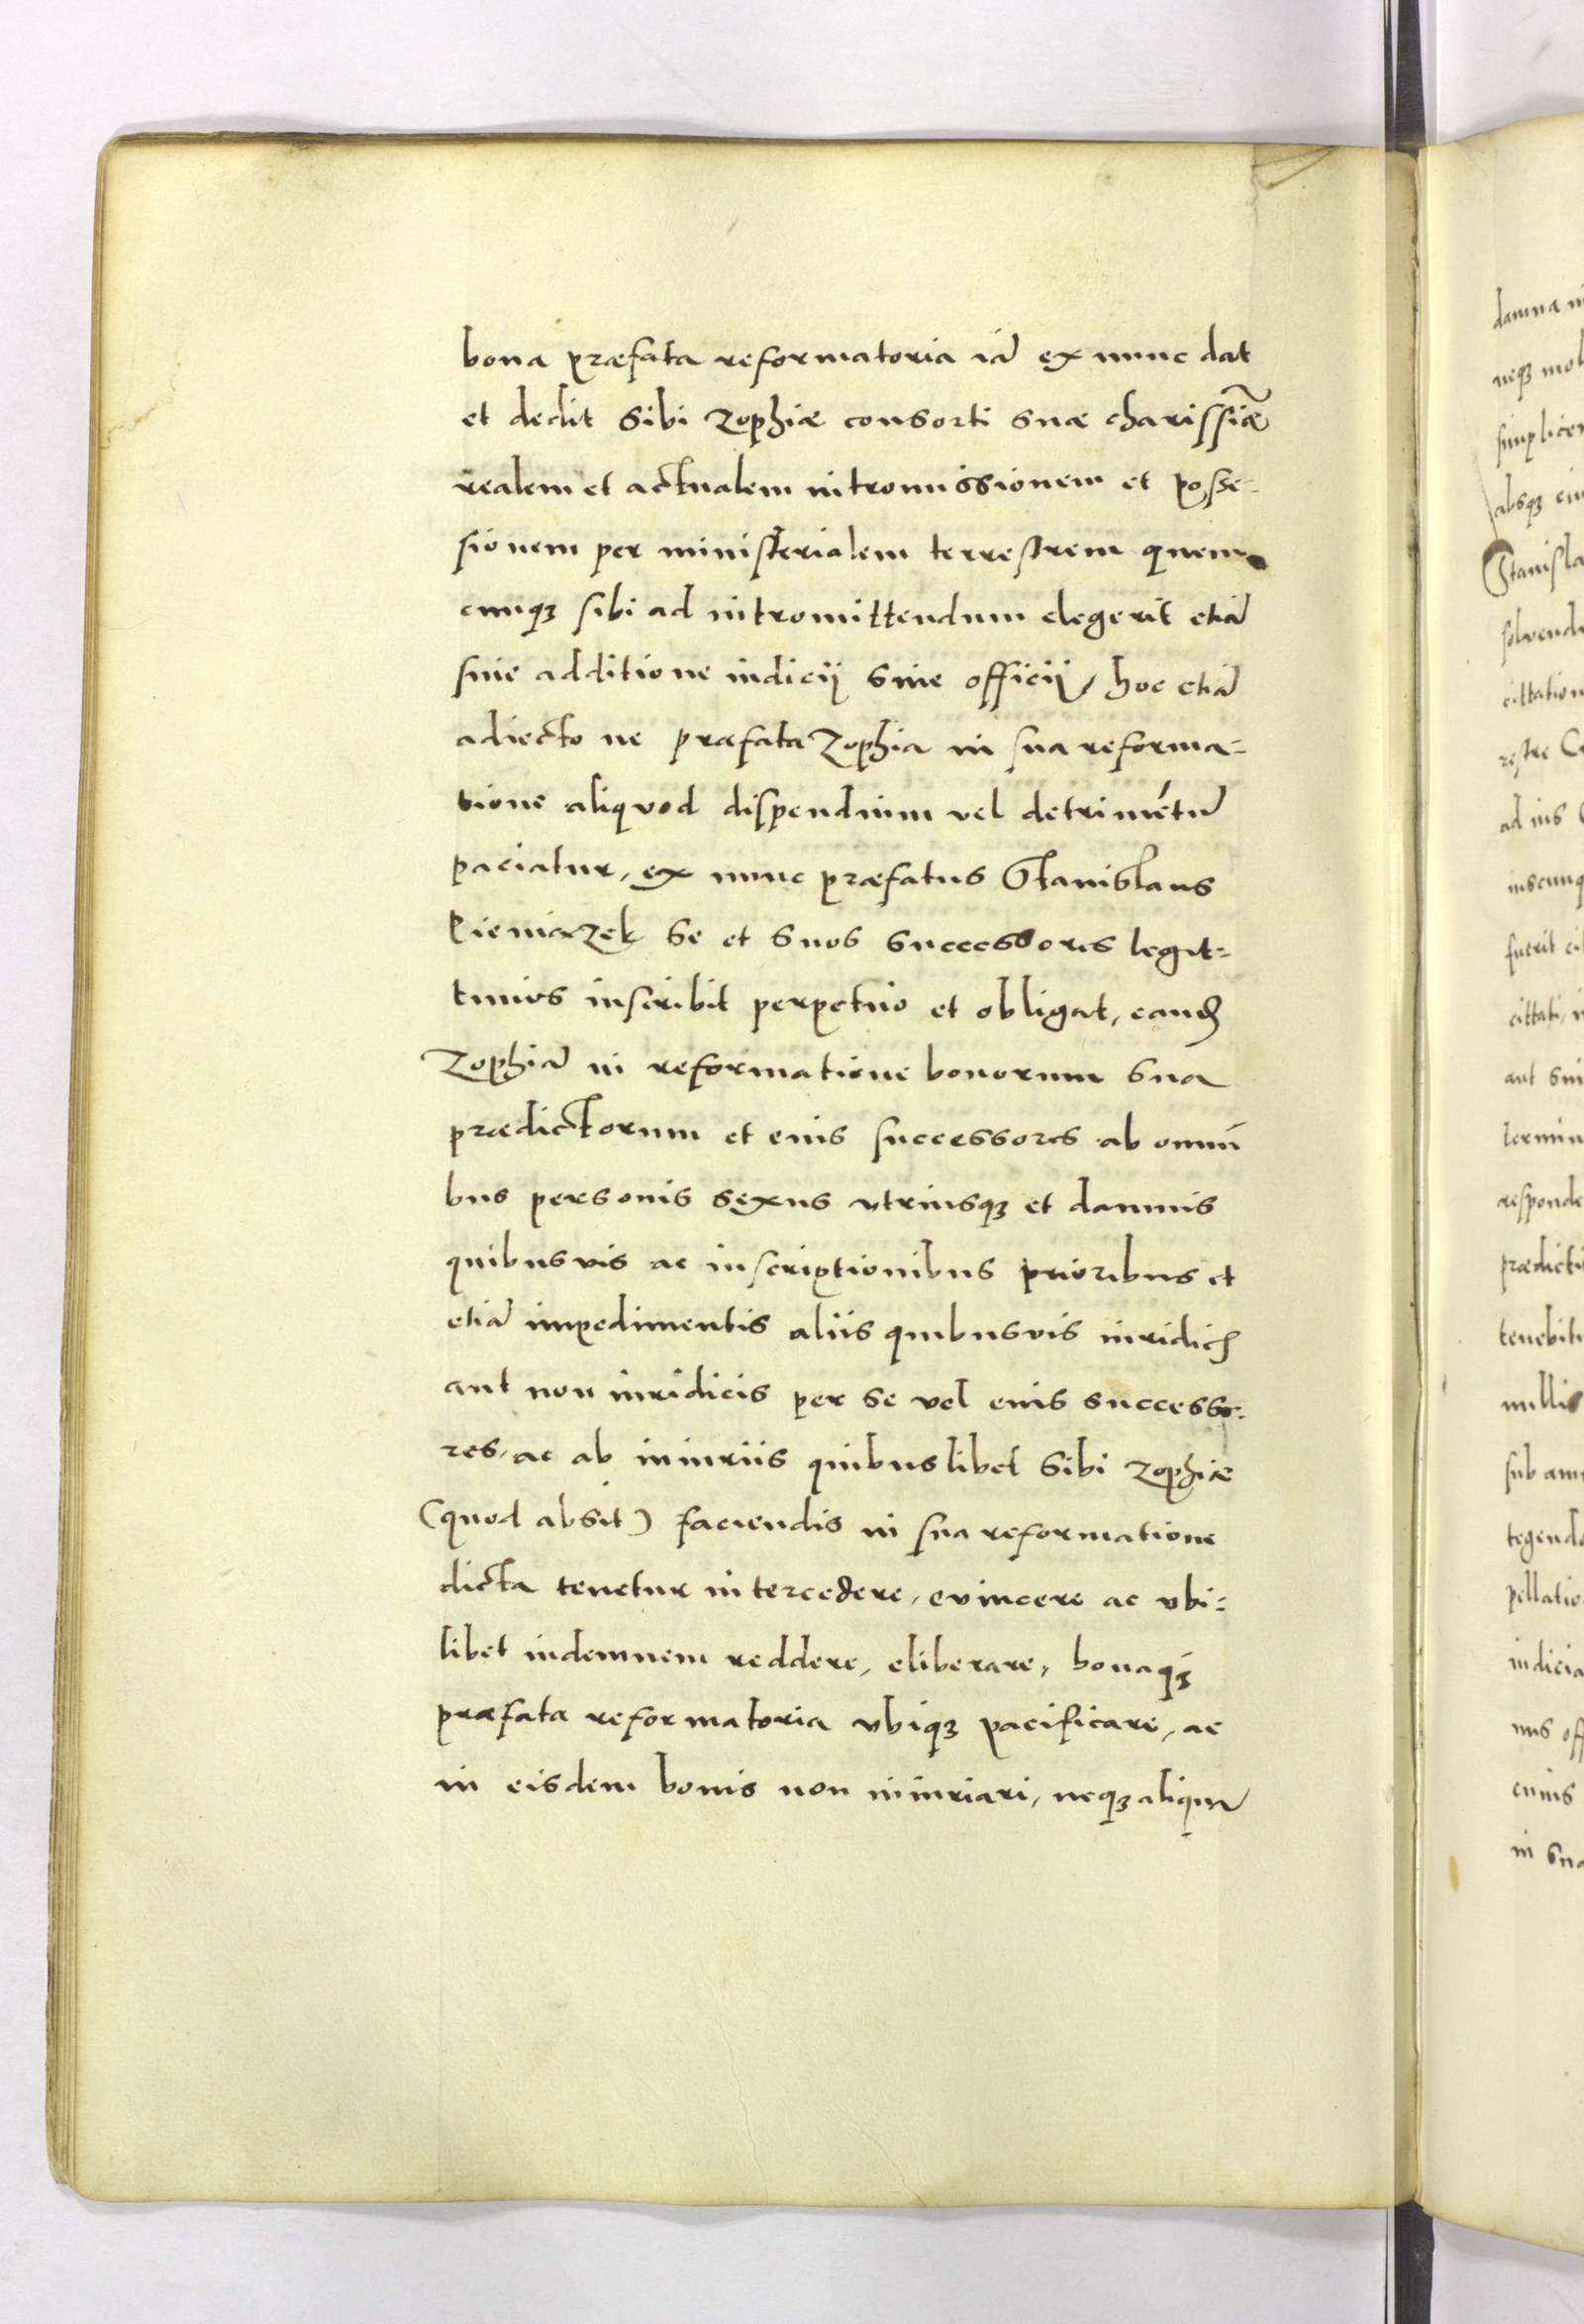 bona præfata reformatoria iā ex nunc dat
et dedit sibi Zophiæ consorti suæ charissiæ̃
realem et actualem intromissionem et posse-
sionem per ministerialem terrestrem quem
cunqꝫ sibi ad intromittendum elegerit etiā
sine additione iudicij sine officij, hoc etiā
adiecto ne præfata Zophia in sua reforma=
tione aliquod dispendium vel detrimētū
paciatur, ex nunc præfatus Stanislaus
Pieniązek se et suos successores legit=
timos inscribit perpetuo et obligat, eandē
Zophiā in reformatione bonorum sua
prædictorum et eius successores ab omni
bus personis sexus vtriusqꝫ et damnis
quibusvis ac inscriptionibus prioribus et
etiā impedimentis aliis quibusvis iuridicꝭ
aut non iuridicis per se vel eius successo-
res, ac ab iniuriis quibuslibet sibi Zophiæ
(quod absit) faciendis in sua reformatione
dicta tenetur intercedere, evincere ac vbi=
libet indemnem reddere, eliberare, bonaqꝫ
præfata reformatoria vbiqꝫ pacificare, ac
in eisdem bonis non iniuriari, neqꝫ aliquā
damna
neqꝫ
absqꝫ
solvend
ad ius
fuerit
cittati,
aut
termin
responde
prædicti
tenebit
nullis
sub
tegend
pellatio
iudicia
nus off
cuius
in sua